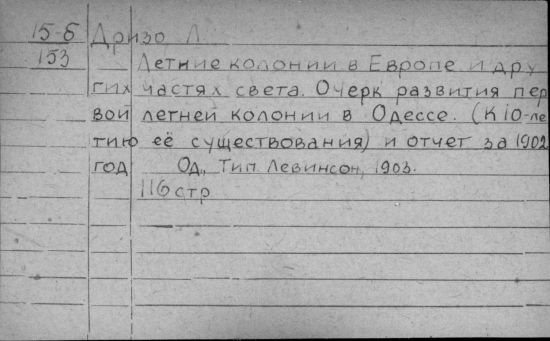 15-б Дризо Л.
153
Летние колонии в Европе и дру
гих частях света. Очерк развития пер
вой летней колонии в Одессе. (К 10-ле
тию её существования) и отчет за 1902
год Од., Тип. Левинсон, 1903.
116 стр